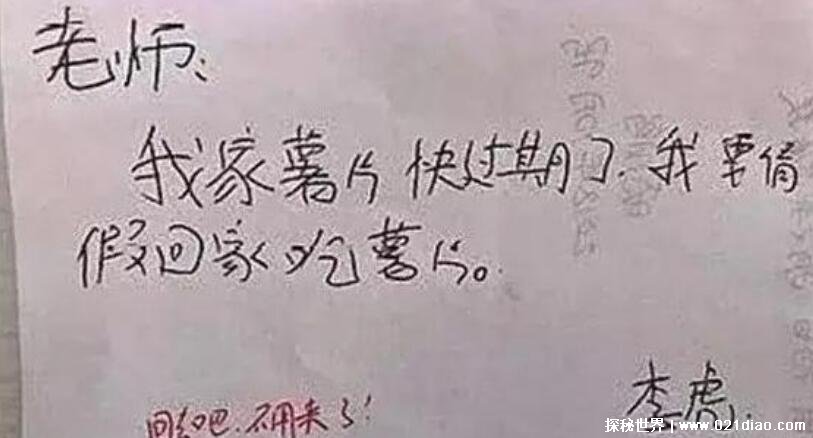 老师：
我家薯片快过期了，我要请
假回家吃薯片。
李虎.
回去吧.不用来了！
探秘世界 www.021diao.com